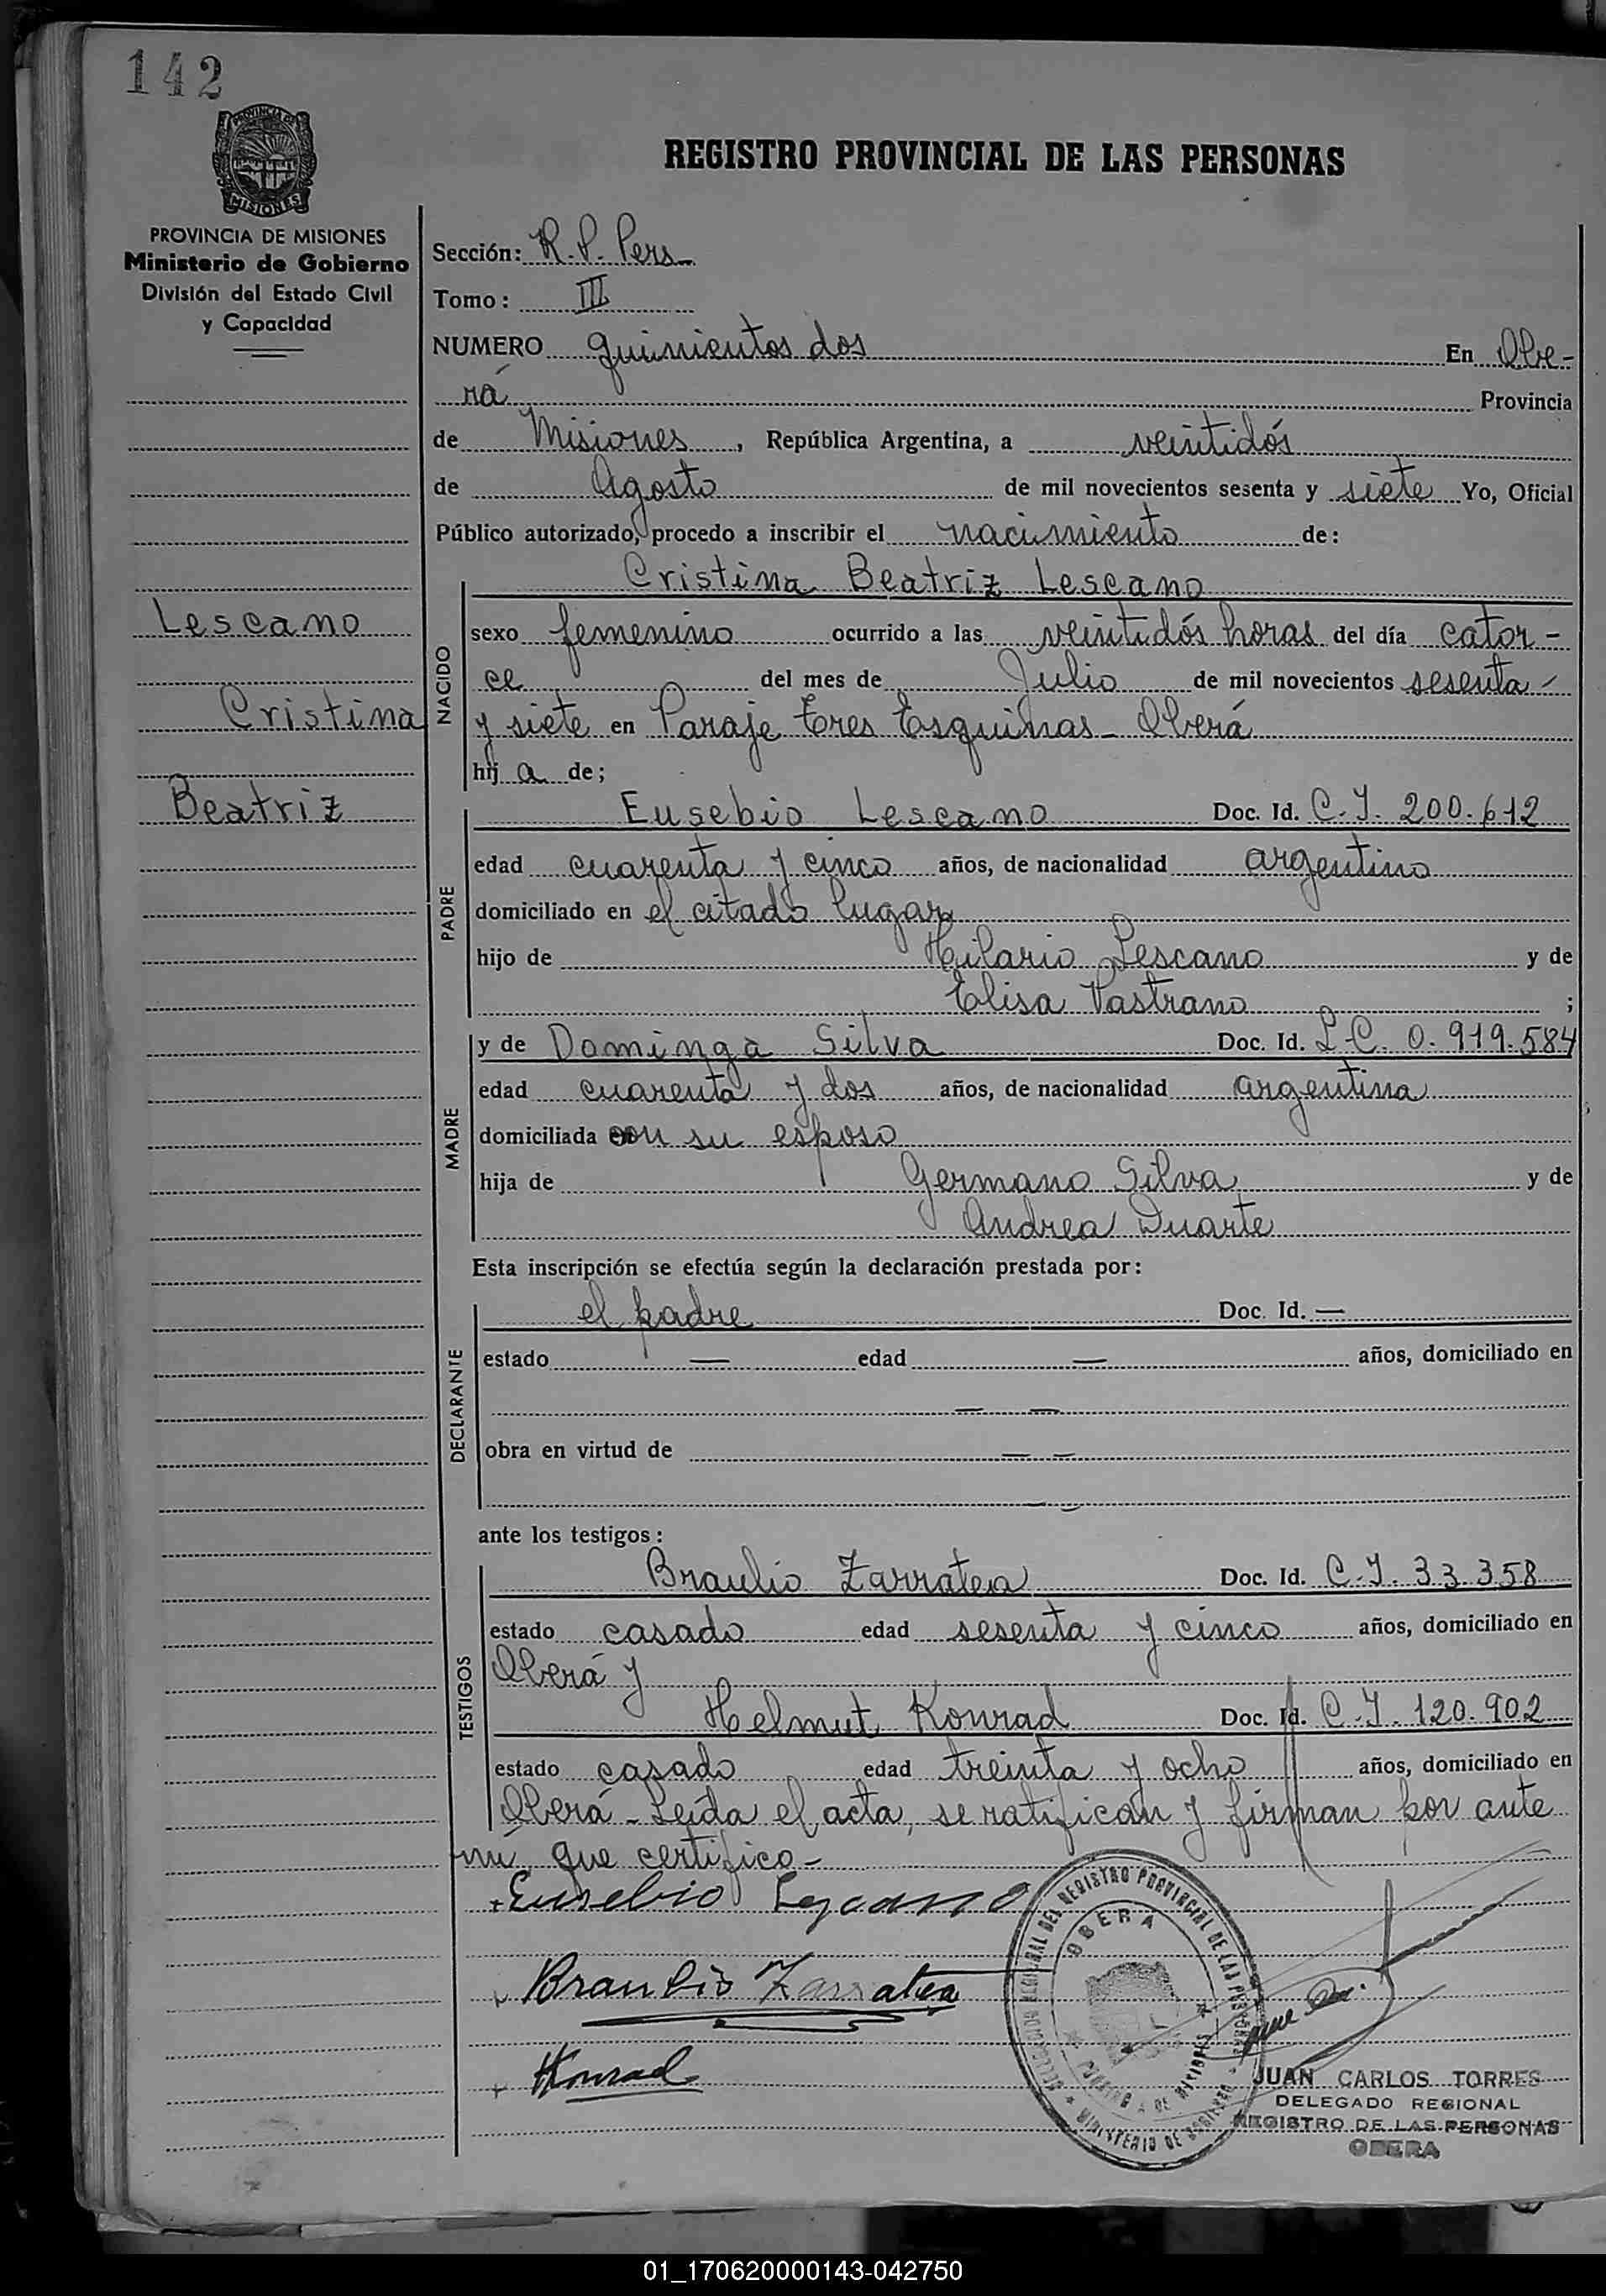 142
PROVINCIA DE
MISIONES
PROVINCIA DE MISIONES
Ministerio de Gobierno
División del Estado Civil
y Capacidad
Lescano
Cristina
Beatriz
REGISTRO PROVINCIAL DE LAS PERSONAS
Sección: R. P. Pers
Tomo: III
NUMERO quinientos dos En Obe-
rá Provincia
de Misiones, República Argentina, a veintidós
de Agosto de mil novecientos sesenta y siete Yo, Oficial
Público autorizado, procedo a inscribir el nacimiento de:
NACIDO
Cristina Beatriz Lescano
sexo femenino ocurrido a las veintidós horas del día cator-
ce del mes de Julio de mil novecientos sesenta
y siete en Paraje Tres Esquinas - Oberá
hij a de;
PADRE
Eusebio Lescano Doc. Id. C.I. 200.612
edad cuarenta y cinco años, de nacionalidad argentino
domiciliado en el citado lugar
hijo de Hilario Lescano y de
Elisa Pastrano ;
MADRE
y de Dominga Silva Doc. Id. L.C. 0.919.584
edad cuarenta y dos años, de nacionalidad argentina
domiciliada con su esposo
hija de Germano Silva y de
Andrea Duarte
Esta inscripción se efectúa según la declaración prestada por:
DECLARANTE
el padre Doc. Id. —
estado — edad — años, domiciliado en
— —
obra en virtud de — —
— —
ante los testigos:
TESTIGOS
Braulio Zarratea Doc. Id. C.I. 33.358
estado casado edad sesenta y cinco años, domiciliado en
Oberá y
Helmut Konrad Doc. Id. C.I. 120.902
estado casado edad treinta y ocho años, domiciliado en
Oberá - Leída el acta, se ratifican y firman por ante
mí, que certifico -
Eusebio Lescano
Braulio Zarratea
HKonrad
DEL REGISTRO PROVINCIAL DE LAS PERSONAS
OBERA
MINISTERIO DE GOBIERNO
JUAN CARLOS TORRES
DELEGADO REGIONAL
REGISTRO DE LAS PERSONAS
OBERA
01_170620000143-042750